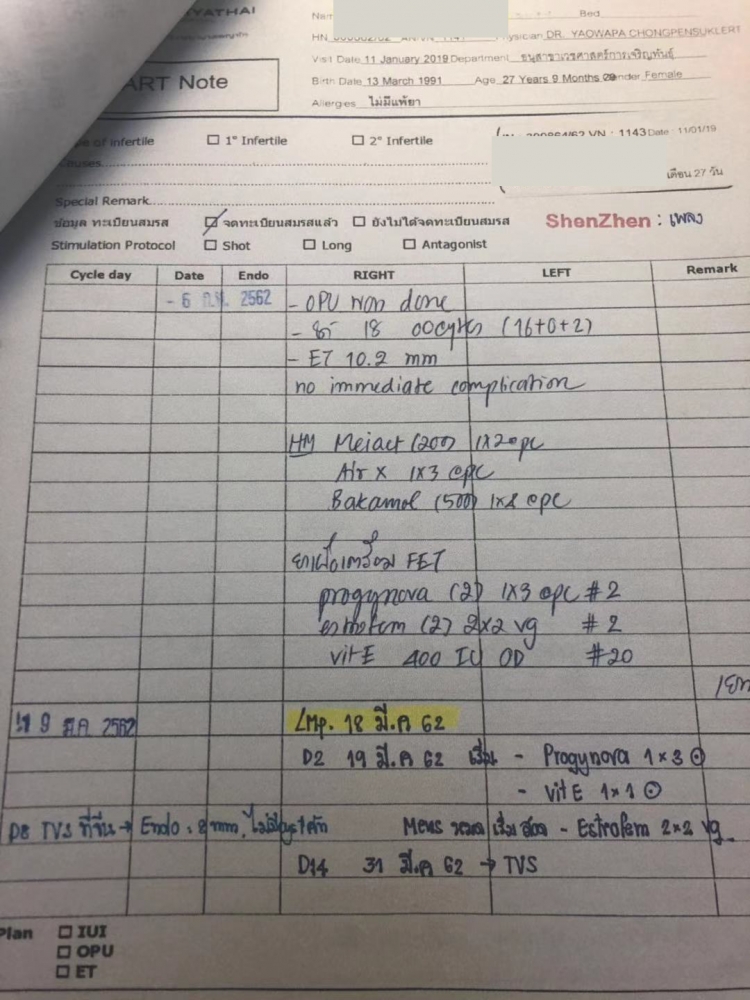 YATHAI
ART Note
Nam
Bed
HN
Physician DR. YAOWAPA CHONGPENSUKLERT
Visit Date 11 January 2019 Department
Birth Date 13 March 1991 Age 27 Years 9 Months 29 Gender Female
Allergies ไม่มีแพ้ยา
of infertile ☐ 1° Infertile ☐ 2° Infertile
VN : 1143 Date : 11/01/19
Causes
เดือน 27 วัน
Special Remark
ข้อมูล ทะเบียนสมรส ☑ จดทะเบียนสมรสแล้ว ☐ ยังไม่ได้จดทะเบียนสมรส ShenZhen : เพลง
Stimulation Protocol ☐ Shot ☐ Long ☐ Antagonist
Cycle day Date Endo RIGHT LEFT Remark
- 6 ก.พ. 2562 - OPU was done
- ได้ 18 oocytes (16+0+2)
- ET 10.2 mm
no immediate complication
HM Meiact (200) 1x2 opc
Air x 1x3 opc
Bakamol (500) 1x2 opc
ยาเพื่อเตรียม FET
progynova (2) 1x3 opc #2
estrofem (2) 2x2 vg #2
vit E 400 IU OD #20
9 มี.ค. 2562 LMP. 18 มี.ค 62
D2 19 มี.ค 62 เริ่ม - Progynova 1x3 ⊙
- vit E 1x1 ⊙
D8 TVS ที่จีน → Endo : 8 mm, Mens หมด เริ่ม สอด - Estrofem 2x2 vg
D14 31 มี.ค 62 → TVS
Plan ☐ IUI
☐ OPU
☐ ET